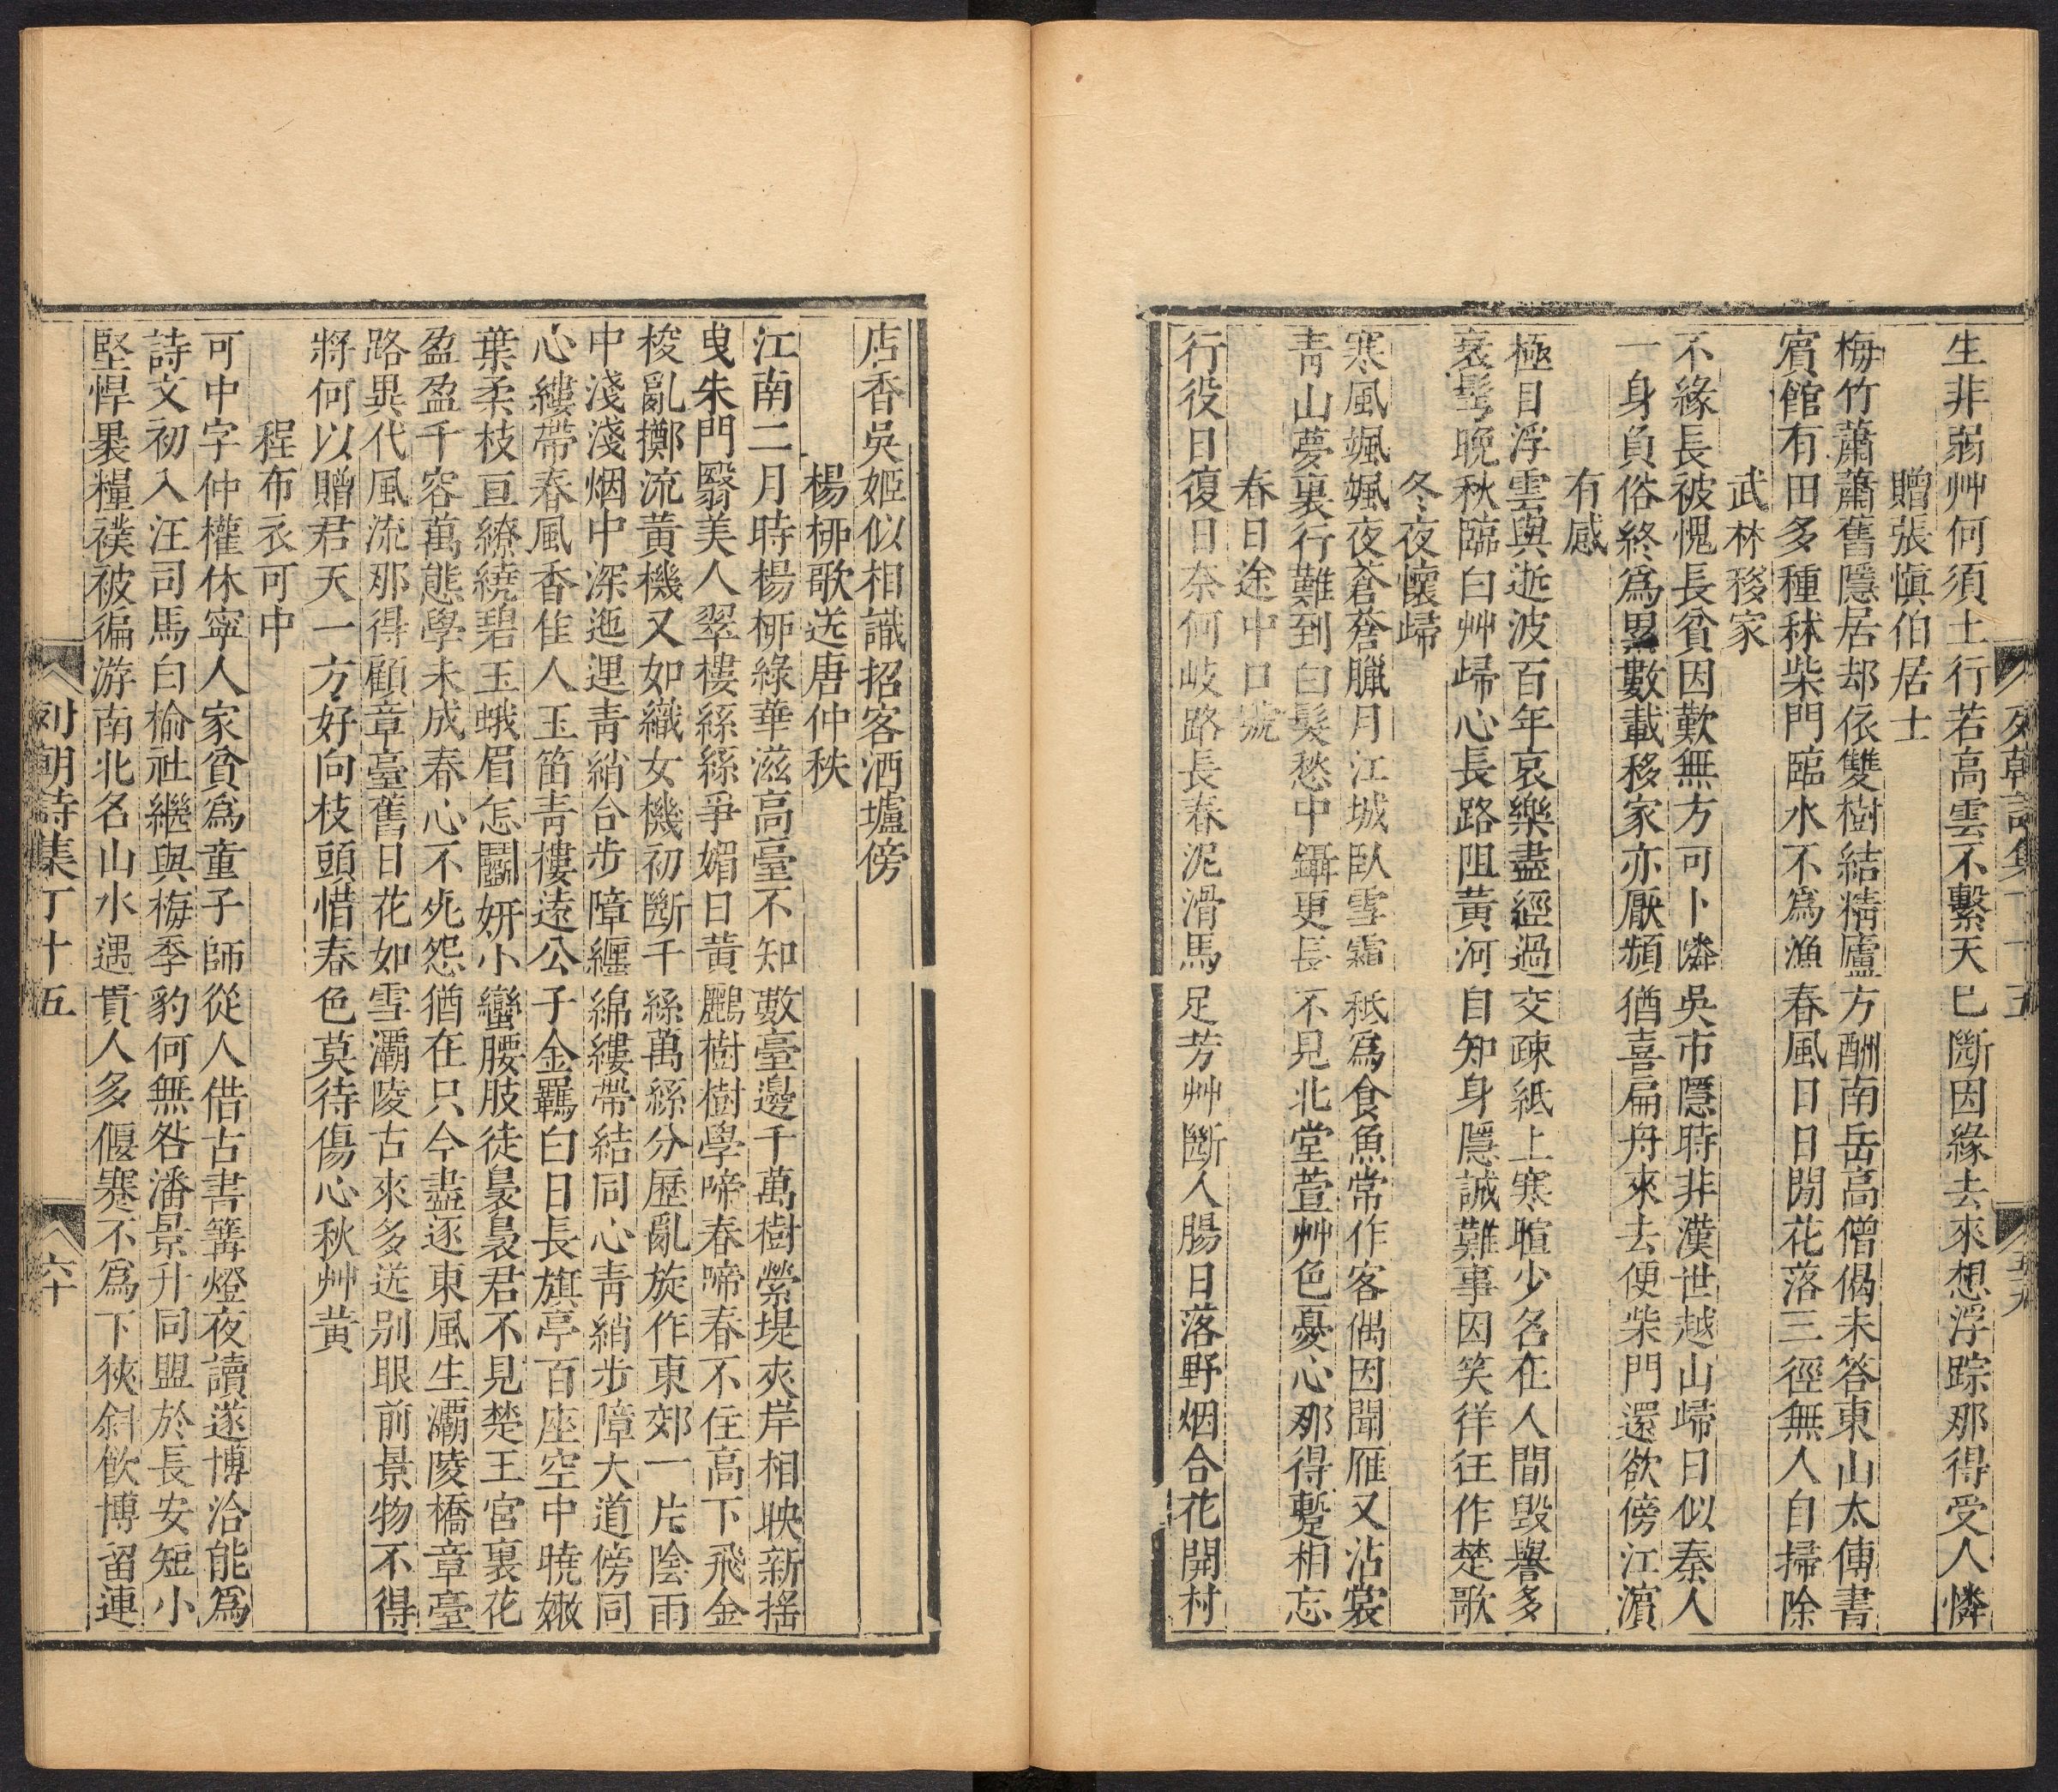 列朝詩集丁十五
五十九
生非弱艸何須土行若高雲不繫天已斷因緣去來想浮踪那得受人憐
贈張愼伯居士
梅竹蕭蕭舊隱居却依雙樹結精廬方酬南岳高僧偈未答東山太傅書
賓館有田多種秫柴門臨水不爲漁春風日日閒花落三徑無人自掃除
武林移家
不緣長被愧長貧因歎無方可卜憐吳市隱時非漢世越山歸日似秦人
一身負俗終爲累數載移家亦厭頻猶喜扁舟來去便柴門還欲傍江濵
有感
極目浮雲與逝波百年哀樂盡經過交疎紙上寒暄少名在人間毀譽多
衰髩晚秋臨白艸歸心長路阻黃河自知身隱誠難事因笑徉狂作楚歌
冬夜懷歸
寒風颯颯夜蒼蒼臘月江城臥雪霜秪爲食魚常作客偶因聞雁又沾裳
靑山夢裏行難到白髮愁中鑷更長不見北堂萱艸色憂心那得蹔相忘
春日途中口號
行役日復日奈何岐路長春泥滑馬足芳艸斷人腸日落野烟合花開村
店香吳姬似相識招客酒壚傍
楊柳歌送唐仲秩
江南二月時楊柳綠華滋高臺不知數臺邊千萬樹縈堤夾岸相映新搖
曳朱門翳美人翠樓絲絲爭媚日黃鸝樹樹學啼春啼春不住高下飛金
梭亂擲流黃機又如織女機初斷千絲萬絲分歷亂旋作東郊一片陰雨
中淺淺烟中深迤邐靑綃合步障纒綿縷帶結同心靑綃步障大道傍同
心縷帶春風香佳人玉笛靑樓遠公子金羈白日長旗亭百座空中曉嫩
葉柔枝亘繚繞碧玉蛾眉怎鬭妍小蠻腰肢徒裊裊君不見楚王宮裏花
盈盈千容萬態學未成春心不死怨猶在只今盡逐東風生灞陵橋章臺
路異代風流那得顧章臺舊日花如雪灞陵古來多送別眼前景物不得
將何以贈君天一方好向枝頭惜春色莫待傷心秋艸黃
程布衣可中
可中字仲權休寧人家貧爲童子師從人借古書篝燈夜讀遂博洽能爲
詩文初入汪司馬白榆社繼與梅季豹何無咎潘景升同盟於長安短小
堅悍褁糧襆被徧游南北名山水遇貴人多偃蹇不爲下狹斜飮博留連
列朝詩集丁十五
六十